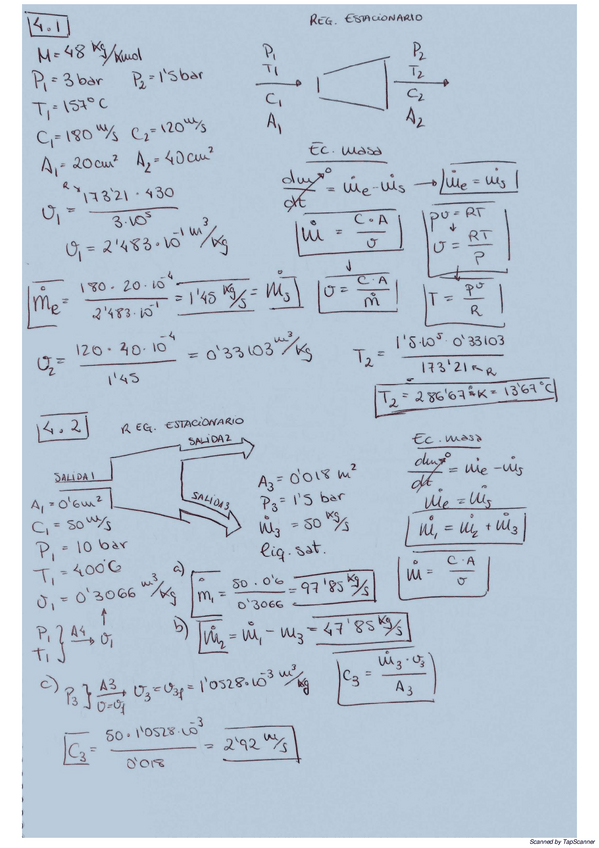 4.1
REG. ESTACIONARIO
M = 48 kg/kmol
P₁ = 3 bar P₂ = 1'5 bar
T₁ = 157°C
C₁ = 180 m/s C₂ = 120 m/s
A₁ = 20 cm² A₂ = 40 cm²
P₁
T₁
C₁
A₁
P₂
T₂
C₂
A₂
Ec. masa
dm/dt⁰ = ṁe - ṁs → ṁe = ṁs
R
υ₁ = 173'21 · 430 / 3·10⁵
υ₁ = 2'483·10⁻¹ m³/kg
ṁ = C·A / υ
pυ = RT
υ = RT / P
ṁe = 180 · 20·10⁻⁴ / 2'483·10⁻¹ = 1'45 kg/s = ṁs
υ = C·A / ṁ
T = pυ / R
υ₂ = 120 · 40·10⁻⁴ / 1'45 = 0'33103 m³/kg
T₂ = 1'5·10⁵ · 0'33103 / 173'21 R
T₂ = 286'67°K = 13'67°C
4.2
REG. ESTACIONARIO
SALIDA 2
SALIDA 1
SALIDA 3
A₁ = 0'6 m²
C₁ = 50 m/s
P₁ = 10 bar
T₁ = 400°C
υ₁ = 0'3066 m³/kg
P₁
T₁ } A4 → υ₁
A₃ = 0'018 m²
P₃ = 1'5 bar
ṁ₃ = 50 kg/s
liq. sat.
Ec. masa
dm/dt⁰ = ṁe - ṁs
ṁe = ṁs
ṁ₁ = ṁ₂ + ṁ₃
ṁ = C·A / υ
a) ṁ₁ = 50 · 0'6 / 0'3066 = 97'85 kg/s
b) ṁ₂ = ṁ₁ - m₃ = 47'85 kg/s
c) P₃ } A3 → υ=υf υ₃ = υ₃f = 1'0528·10⁻³ m³/kg
C₃ = ṁ₃ · υ₃ / A₃
C₃ = 50 · 1'0528·10⁻³ / 0'018 = 2'92 m/s
Scanned by TapScanner